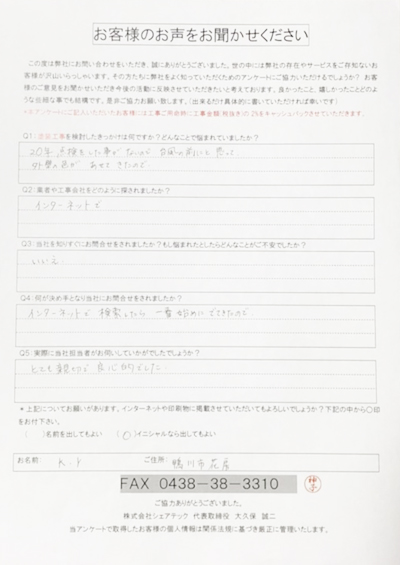 お客様のお声をお聞かせください
この度は弊社にお問い合わせをいただき、誠にありがとうございました。世の中には弊社の存在やサービスをご存知ないお
客様が沢山いらっしゃいます。その方たちに弊社をよく知っていただくためのアンケートにご協力いただけるでしょうか？ お客
様のご意見をお聞かせいただき今後の活動に反映させていただきたいと考えております。良かったこと、嬉しかったことどのよ
うな些細な事でも結構です。是非ご協力お願い致します。（出来るだけ具体的に書いていただければ幸いです）
※本アンケートにご記入いただいたお客様には工事ご用命時に工事金額(税抜き)の2%をキャッシュバックさせていただきます。
Q1：点検工事を検討したきっかけは何ですか？どんなことで悩まれていましたか？
20年、点検をした事がないので 台風の前にと思って
外壁の色が あせてきたので
Q2：業者や工事会社をどのように探されましたか？
インターネットで
Q3：当社を知りすぐにお問合せをされましたか？もし悩まれたとしたらどんなことがご不安でしたか？
いいえ
Q4：何が決め手となり当社にお問合せをされましたか？
インターネットで 検索したら 一番始めに でてきたので
Q5：実際に当社担当者がお伺いしていかがでしたでしょうか？
とても親切で 良心的でした
＊上記についてお願いがあります。インターネットや印刷物に掲載させていただいてもよろしいでしょうか？下記の中から〇印
をお付下さい。
（ ）名前を出してもよい （○）イニシャルなら出してもよい
お名前： K.Y ご住所： 鴨川市
FAX 0438-38-3310
ご協力ありがとうございました。
株式会社シェアテック 代表取締役 大久保 誠二
当アンケートで取得したお客様の個人情報は関係法規に基づき厳正に管理いたします。